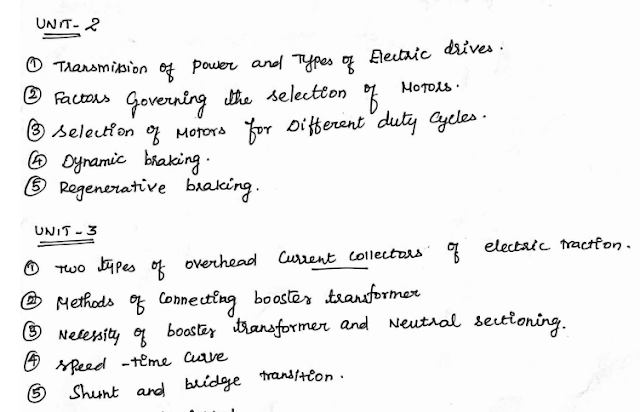 UNIT- 2
① Transmission of power and Types of Electric drives.
② Factors Governing the selection of Motors.
③ Selection of Motors for Different duty Cycles.
④ Dynamic braking.
⑤ Regenerative braking.
UNIT - 3
① Two types of overhead Current collectors of electric traction.
② Methods of Connecting booster transformer
③ Necessity of booster transformer and Neutral sectioning.
④ speed - time Curve
⑤ Shunt and bridge transition.